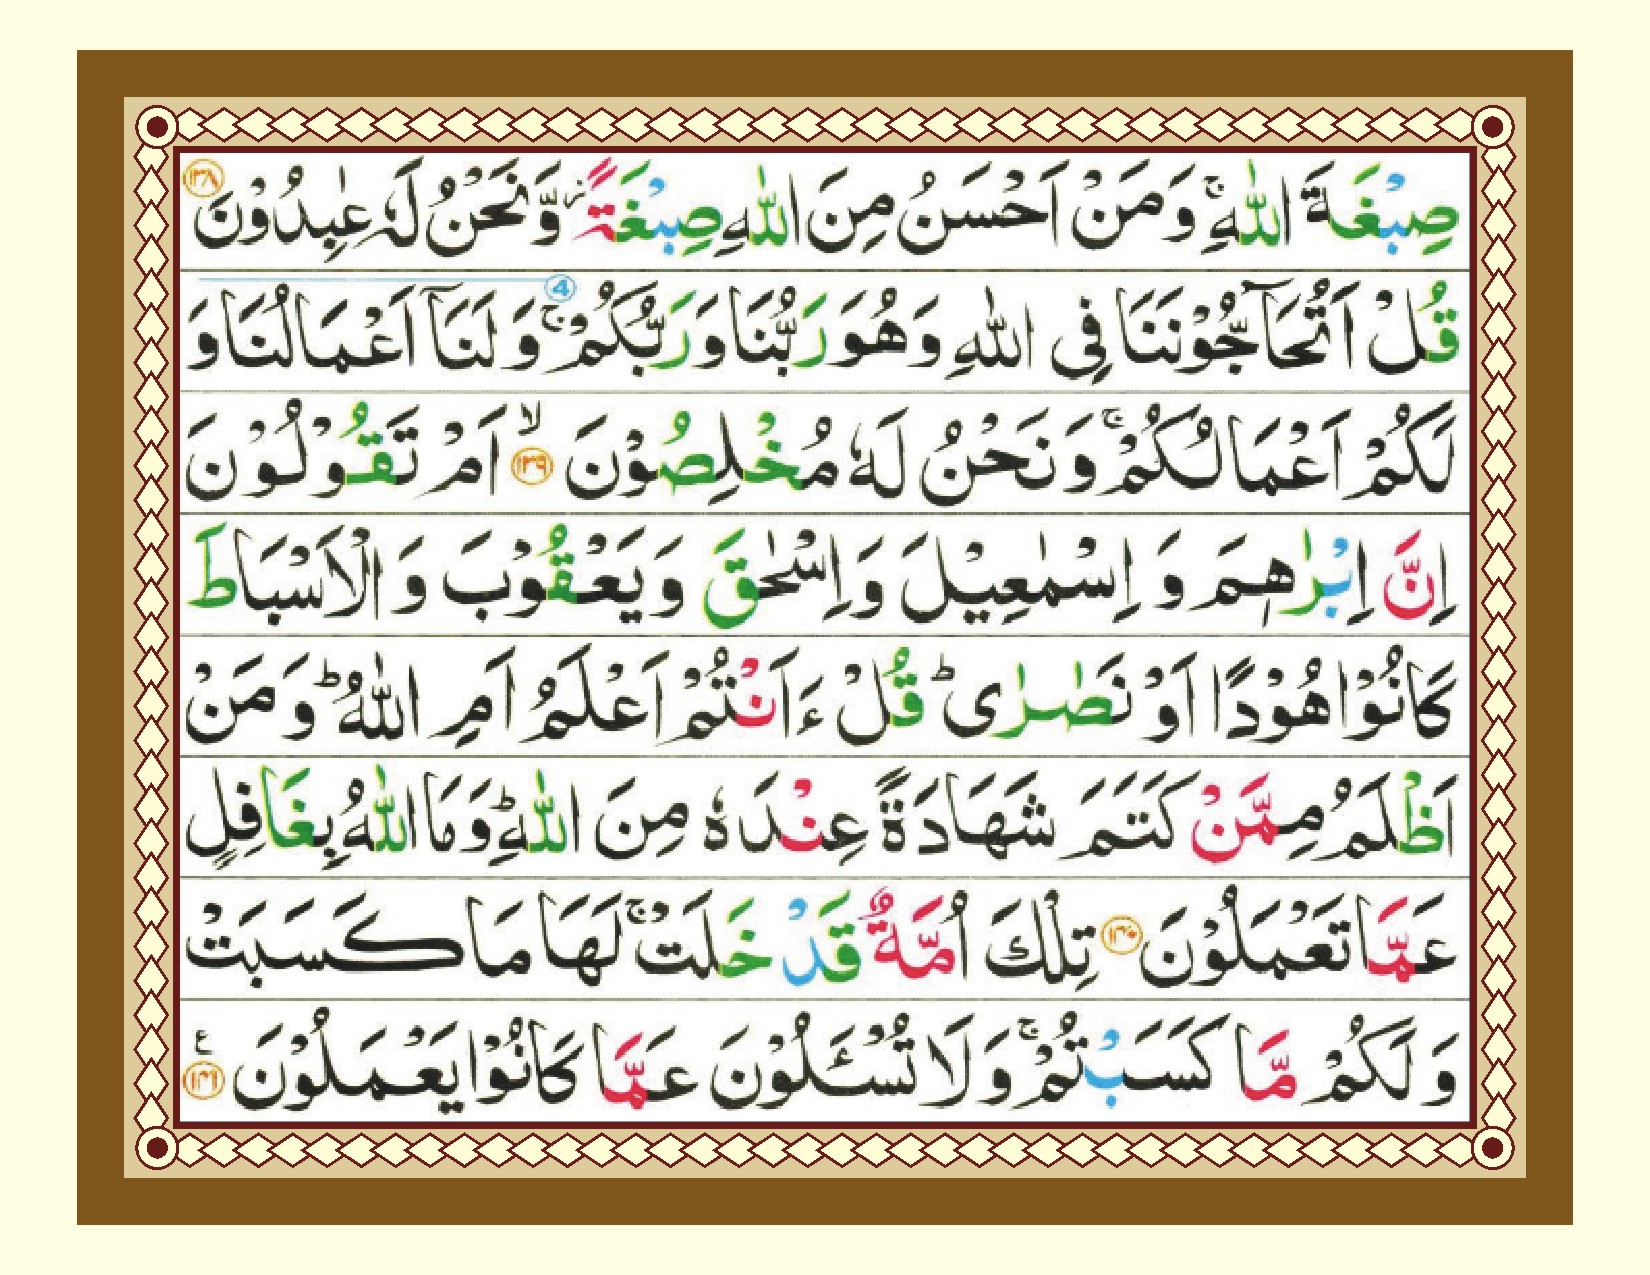 صِبْغَةَ اللّٰهِ ۚ وَمَنْ اَحْسَنُ مِنَ اللّٰهِ صِبْغَةً ۫ وَّنَحْنُ لَهٗ عٰبِدُوْنَ ﴿۱۳۸﴾
قُلْ اَتُحَآجُّوْنَنَا فِى اللّٰهِ وَهُوَ رَبُّنَا وَرَبُّكُمْ ۚ 4 وَلَنَآ اَعْمَالُنَا وَ
لَكُمْ اَعْمَالُكُمْ ۚ وَنَحْنُ لَهٗ مُخْلِصُوْنَ ۙ ﴿۱۳۹﴾ اَمْ تَقُوْلُوْنَ
اِنَّ اِبْرٰهٖمَ وَ اِسْمٰعِيْلَ وَاِسْحٰقَ وَيَعْقُوْبَ وَ الْاَسْبَاطَ
كَانُوْا هُوْدًا اَوْ نَصٰرٰى ؕ قُلْ ءَاَنْتُمْ اَعْلَمُ اَمِ اللّٰهُ ؕ وَمَنْ
اَظْلَمُ مِمَّنْ كَتَمَ شَهَادَةً عِنْدَهٗ مِنَ اللّٰهِ ؕ وَمَا اللّٰهُ بِغَافِلٍ
عَمَّا تَعْمَلُوْنَ ﴿۱۴۰﴾ تِلْكَ اُمَّةٌ قَدْ خَلَتْ ۚ لَهَا مَا كَسَبَتْ
وَلَكُمْ مَّا كَسَبْتُمْ ۚ وَلَا تُسْـَٔلُوْنَ عَمَّا كَانُوْا يَعْمَلُوْنَ ع ﴿۱۴۱﴾